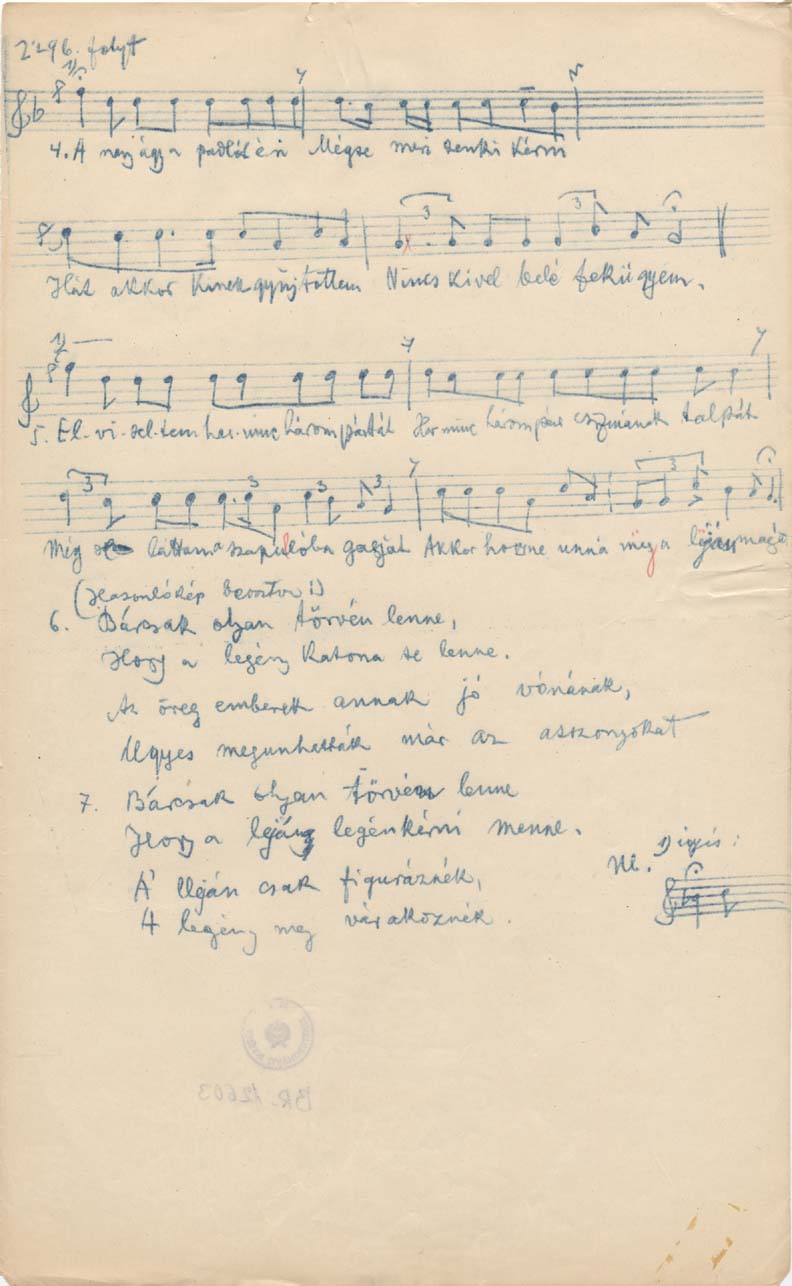 2296. folyt
4. A nagy ágy a padlót éri Mégse meri senki kérni
Hát akkor kinek gyűjtöttem Nincs kivel belé fekügyém.
5. El-vi-sel-tem har-minc három pártát Harminc három pár csizmának talpát
Még láttam a szapulóba gagját Akkor hogyne unná meg a lján magát
(Hasonlókép beosztva is)
6. Bárcsak olyan törvén lenne,
Hogy a legény katona se lenne.
Az öreg emberek annak jó vónának,
Ugyes megunhatták már az asszonyokat
7. Bárcsak olyan törvén lenne
Hogy a lján legénkérni menne.
A lján csak figuráznék,
A legény meg várakoznék.
Nb. 1) így is:
BR. 12603